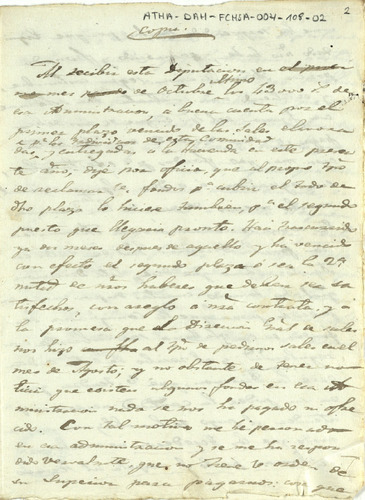 ATHA-DAH-FCHSA-004-108-02
2
Copia
Al recibir esta Diputacion en el
mes de Octubre ultimo los 43000 r.^s de
esa Administracion, á buena cuenta por el
primer plazo vencido de las Sales
de esta Comunidad
y entregadas a la Hacienda en este presente
te año, dije por oficio, que al propio tpo
de reclamar fondos p.^a cubrir el todo de
dho plazo lo hiciese tambien, p.^a el segundo
puesto que llegaria pronto. Han transcurrido
ya dos meses despues de aquello y ha vencido
con efecto el segundo plazo ó sea la 2.^a
mitad de nros haberes que debian ser sa
tisfechos, con arreglo á nra contrata, y á
la promesa que el Direccion Gral de Sales
nos hizo al tpo de pedirnos sales en el
mes de Agosto; y no obstante de tener no
ticia que existen algunos fondos en esa Ad
ministracion nada se nos ha pagado ni ofre
cido. Con tal motivo me he personado
en esa administracion y se me ha respon
dido verbalmente, que no tiene V. orden de
su Superior para pagarnos; con que